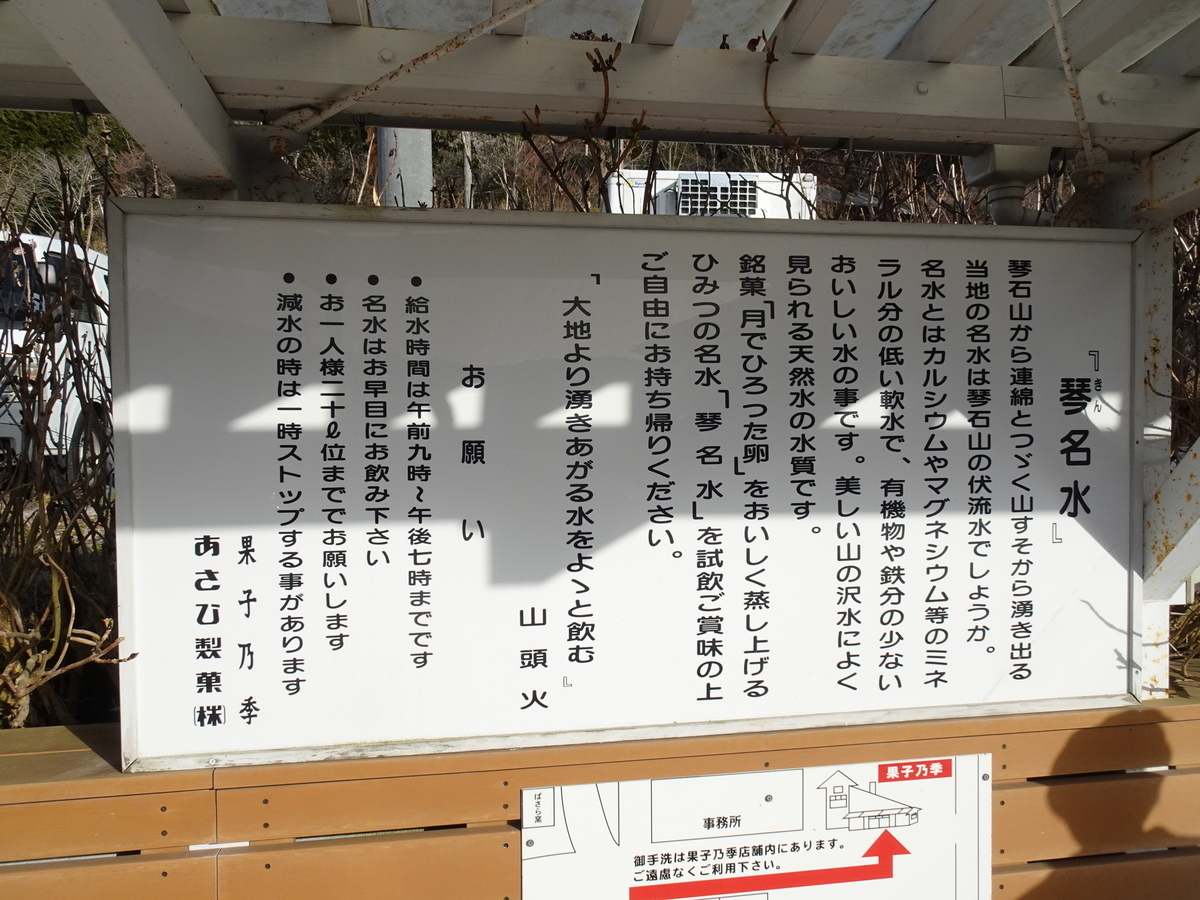 『琴名水』
きん
琴石山から連綿とつゞく山すそから湧き出る
当地の名水は琴石山の伏流水でしようか。
名水とはカルシウムやマグネシウム等のミネ
ラル分の低い軟水で、有機物や鉄分の少ない
おいしい水の事です。美しい山の沢水によく
見られる天然水の水質です。
銘菓「月でひろつた卵」をおいしく蒸し上げる
ひみつの名水、「琴名水」を試飲ご賞味の上
ご自由にお持ち帰りください。
「大地より湧きあがる水をよゝと飲む』
山頭火
お願い
●給水時間は午前九時～午後七時までです
●名水はお早目にお飲み下さい
●お一人様二十ℓ位まででお願いします
●減水の時は一時ストップする事があります
果子乃季
あさひ製菓㈱
ばさら窯
事務所
果子乃季
御手洗は果子乃季店舗内にあります。
ご遠慮なくご利用下さい。